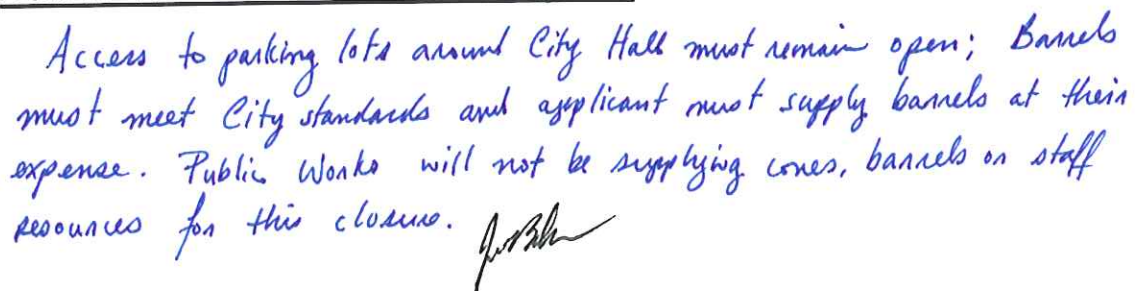 Access to parking lots around City Hall must remain open; Barrels
must meet City standards and applicant must supply barrels at their
expense. Public Works will not be supplying cones, barrels or staff
resources for this closure.